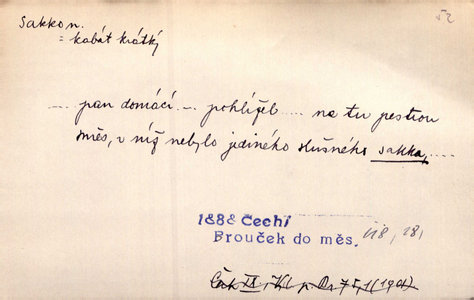 52
Sakko n.
= kabát krátký
.... pan domácí .... pohlížel .... na tu pestrou
směs, v níž nebylo jediného slušného sakka, ....
1888 Čech 1
Brouček do měs. 118, 28,